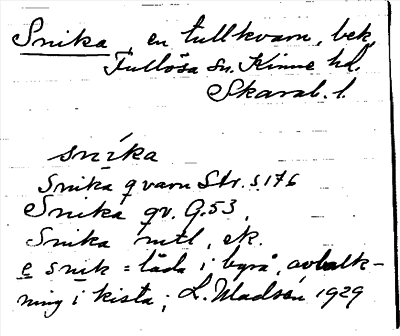 Snika, en tullkvarn, bek,
Fullösa sn. Kinne hd.
Skarab. l.
snika
Snika qvarn Str. s.176
Snika qv. G.53,
Snika mtl, ek.
e snik = låda i byrå, avbalk-
ning i kista; L. Wadsén 1929